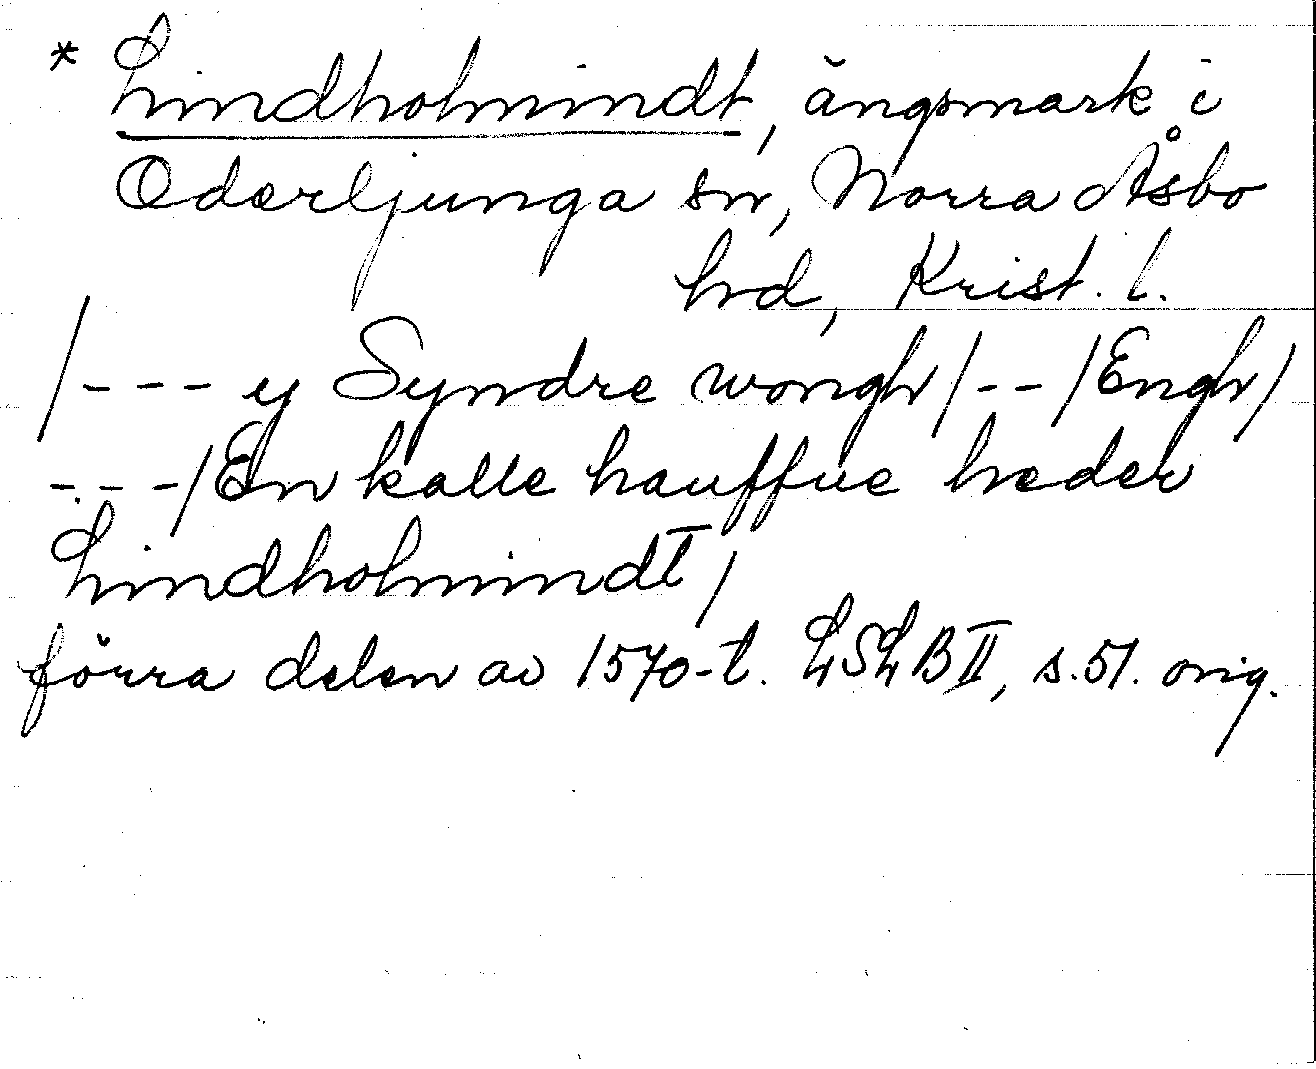 * Lindholmindt, ängsmark i
Oderljunga sn, Norra Åsbo
hd, Krist. l.
/--- y Syndre wongh/--/Engh/
---/En kalle hauffue heder
Lindholmindt/
förra delen av 1570-t. LSLB II, s.51. orig.